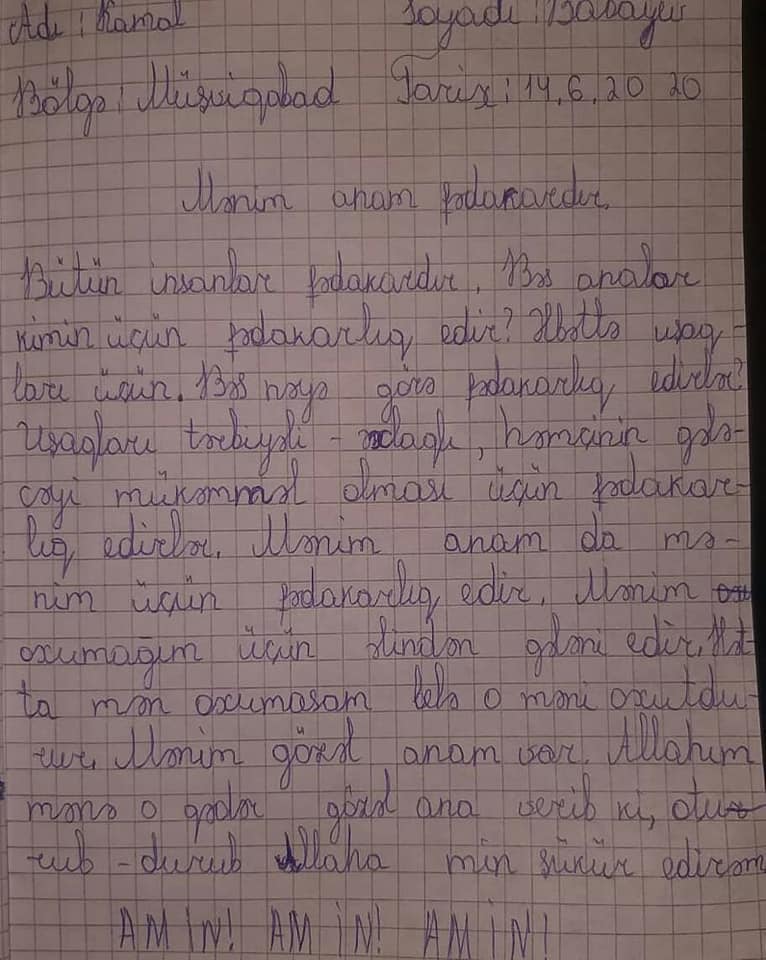 Adı: Kamal Soyadı: Babayev
Bölgə: Müşviqabad Tarix: 14.6.20 20
Mənim anam fədakardır.
Bütün insanlar fədakardır. Bəs analar
kimin üçün fədakarlıq edir? Əlbəttə uşaq-
ları üçün. Bəs nəyə görə fədakarlıq edirlər?
Uşaqları tərbiyəli - ədəblı, həmçinin gələ-
cəyi mükəmməl olması üçün fədakar-
lıq edirlər. Mənim anam da mə-
nim üçün fədakarlıq edir. Mənim
oxumağım üçün əlindən gələni edir. Hət
ta mən oxumasam belə o məni oxutdu-
rur. Mənim gözəl anam var. Allahım
mənə o qədər gözəl ana verib ki, otu
rub - durub Allaha min şükür edirəm
AMİN! AMİN! AMİN!